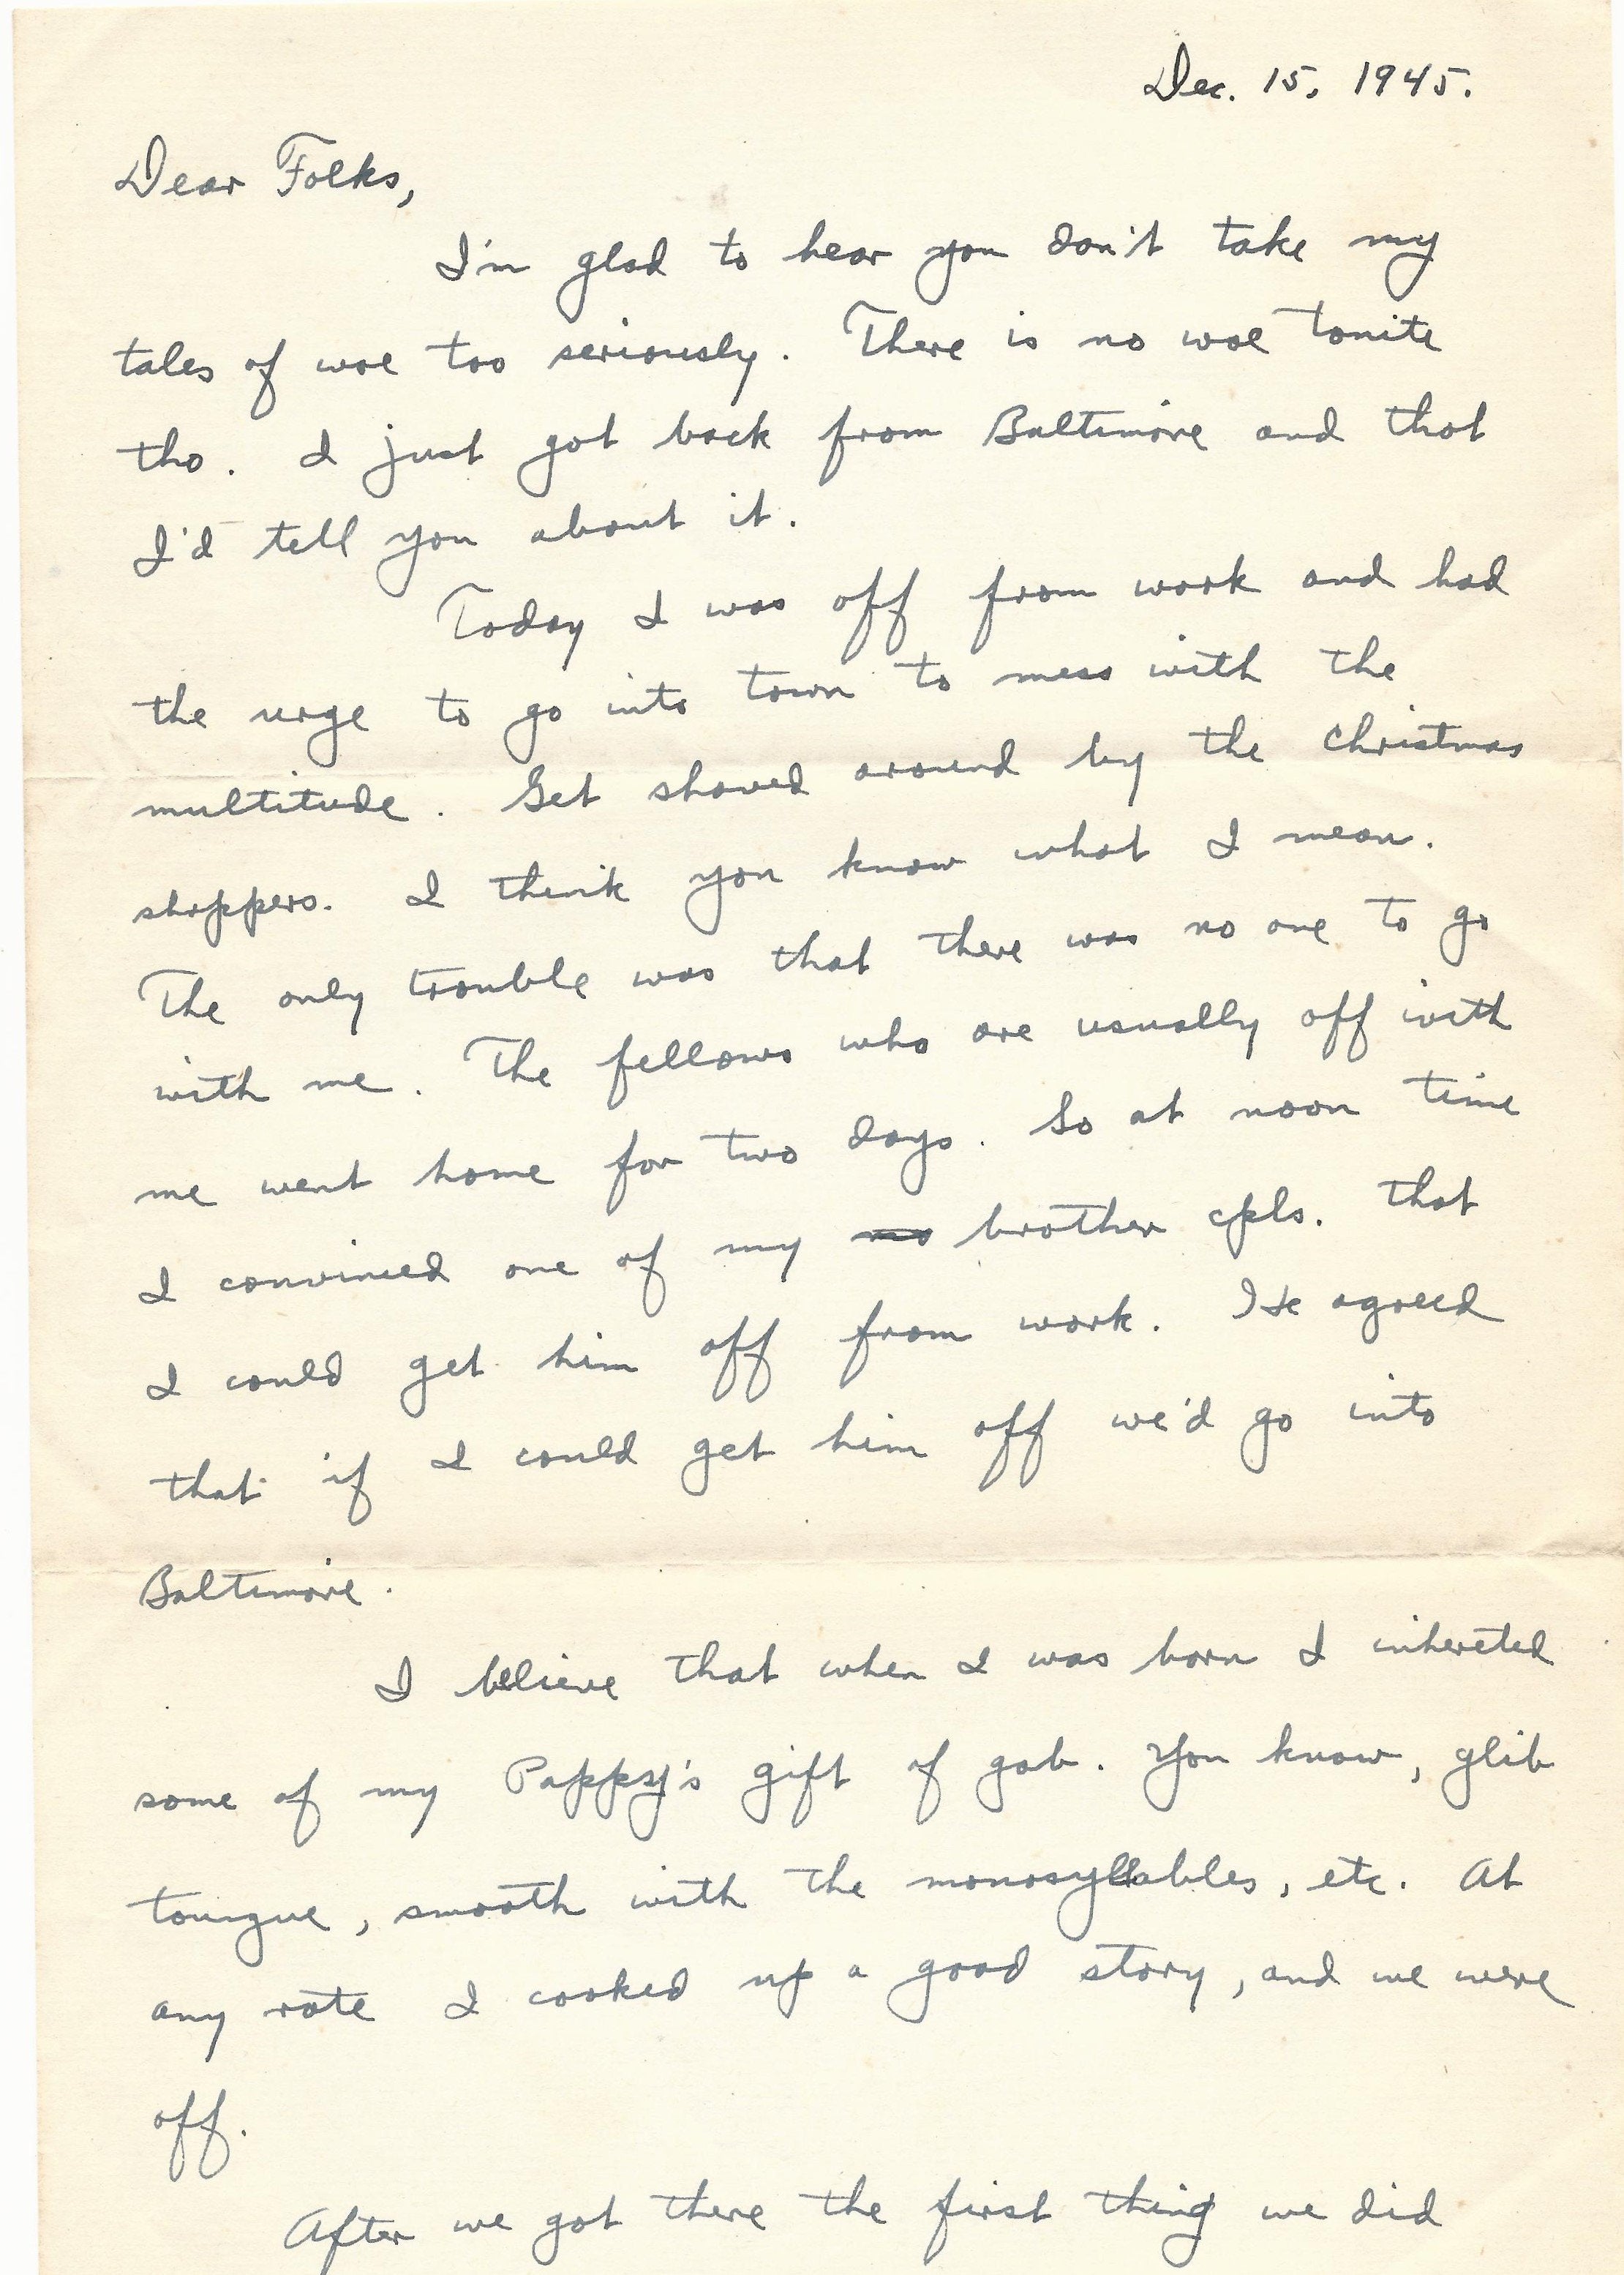 Dec. 15, 1945.
Dear Folks,
I'm glad to hear you don't take my
tales of woe too seriously. There is no woe tonite
tho. I just got back from Baltimore and that
I'd tell you about it.
Today I was off from work and had
the urge to go into town to mess with the
multitude. Get shoved around by the Christmas
shoppers. I think you know what I mean.
The only trouble was that there was no one to go
with me. The fellows who are usually off with
me went home for two days. So at noon time
I convinced one of my brother cpls. that
I could get him off from work. He agreed
that if I could get him off we'd go into
Baltimore.
I believe that when I was born I inhereted
some of my Pappy's gift of gab. You know, glib
toungue, smooth with the monosyllables, etc. At
any rate I cooked up a good story, and we were
off.
After we got there the first thing we did